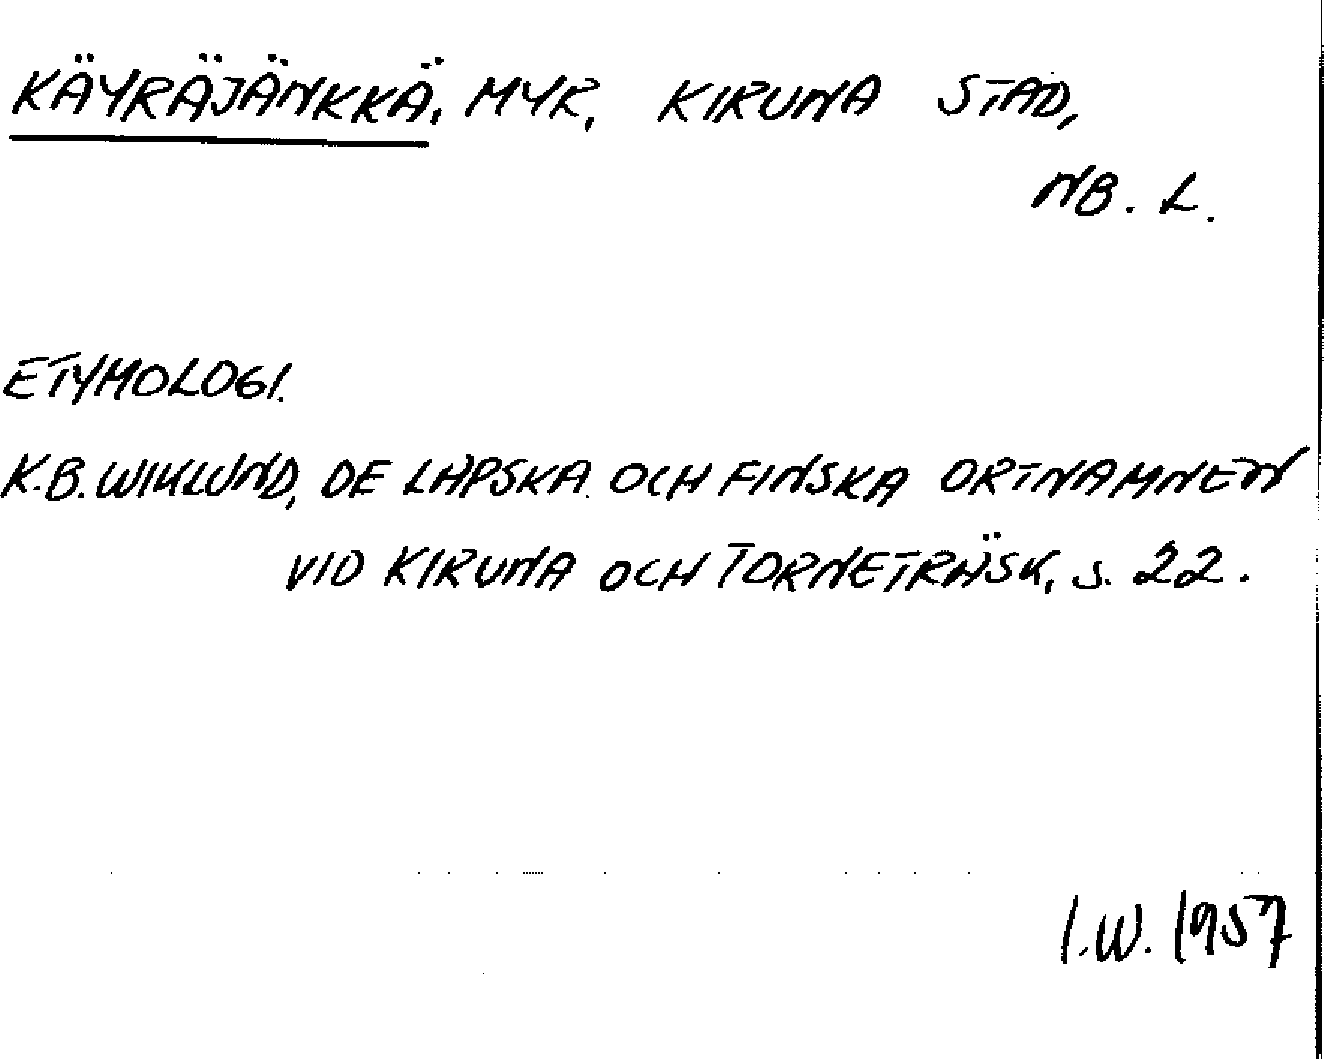 KÄYRÄJÄNKKÄ, MYR, KIRUNA STAD,
NB. L.
ETYMOLOGI.
K.B. WIKLUND, DE LAPSKA OCH FINSKA ORTNAMNEN
VID KIRUNA OCH TORNETRÄSK, S. 22.
I.W. 1957